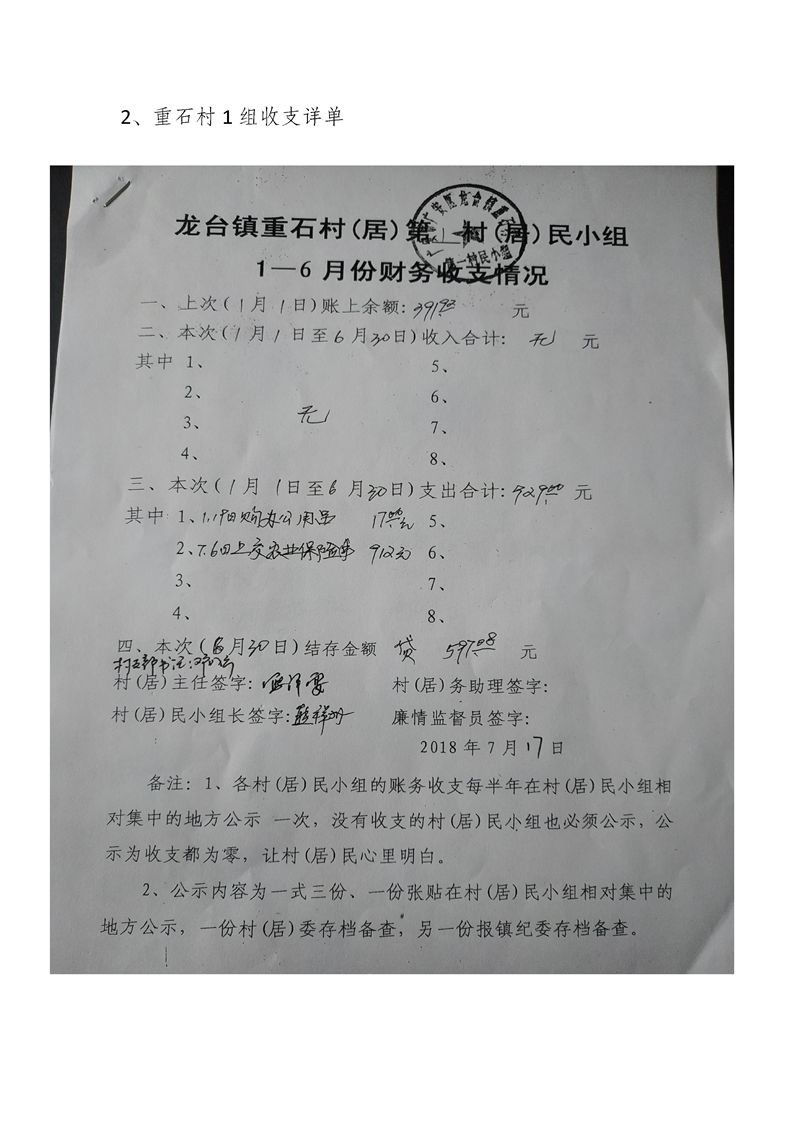 2、重石村 1 组收支详单
龙台镇重石村(居)第1村(居)民小组
第一村民小组
1—6 月份财务收支情况
一、上次(1月1日)账上余额: 元
二、本次(1月1日至6月30日)收入合计: 无 元
其中 1、 5、
2、 6、
无
3、 7、
4、 8、
三、本次(1月1日至6月30日)支出合计:929.00 元
其中 1、1.19日购办公用品 17.00元 5、
2、7.6日上交农业保险 912元 6、
3、 7、
4、 8、
四、本次(6月30日)结存金额 贷 597.08 元
村支部书记:
村(居)主任签字: 村(居)务助理签字:
村(居)民小组长签字: 廉情监督员签字:
2018 年 7 月17日
备注: 1、各村(居)民小组的账务收支每半年在村(居)民小组相
对集中的地方公示 一次, 没有收支的村(居)民小组也必须公示, 公
示为收支都为零, 让村(居)民心里明白。
2、公示内容为一式三份、一份张贴在村(居)民小组相对集中的
地方公示, 一份村(居)委存档备查, 另一份报镇纪委存档备查。